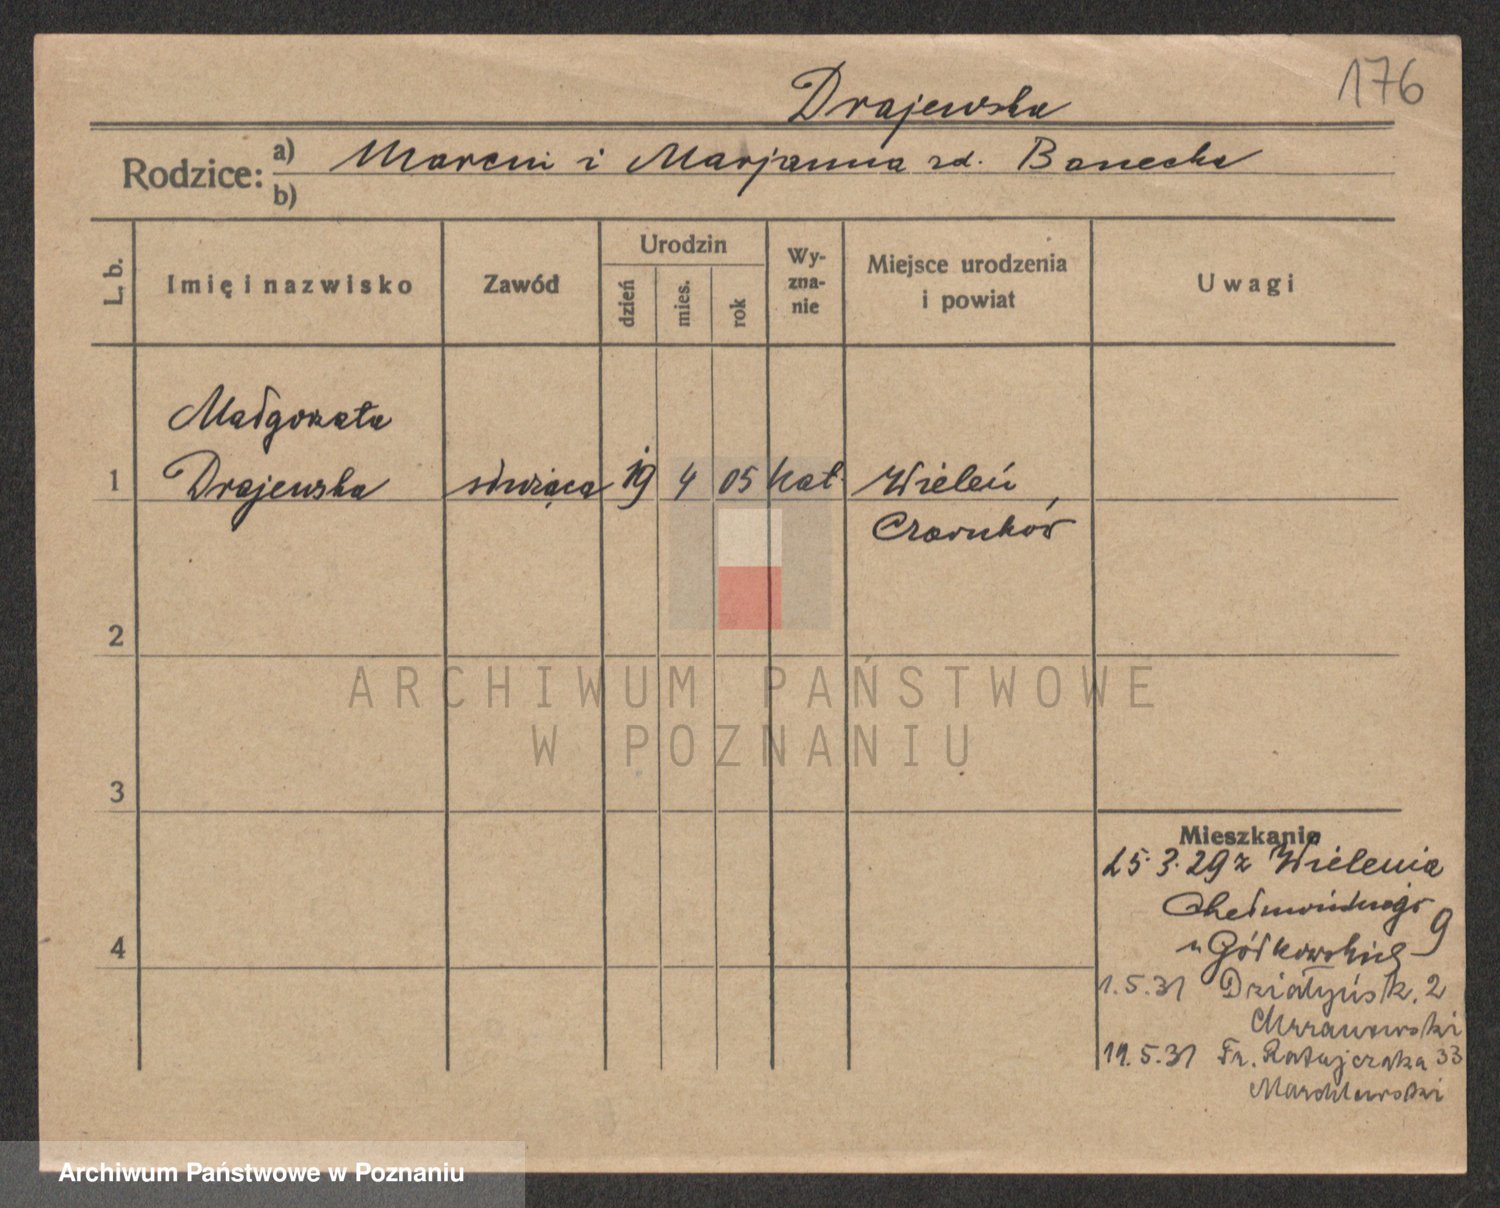 176
Drajewska
Rodzice: a) Marcin i Marjanna zd. Banecka
b)
L. b. Imię i nazwisko Zawód Urodzin dzień mies. rok Wyznanie Miejsce urodzenia i powiat Uwagi
Małgorzata
1 Drajewska służąca 19 4 05 kat. Wieleń
Czarnków
2
ARCHIWUM PAŃSTWOWE
W POZNANIU
3
Mieszkanie
25.3.29 z Wielenia
9
4 u Górkowskich
1.5.31 Działyńsk. 2
Chrzanowski
19.5.31 Fr. Ratajczaka 33
Marchlewski
Archiwum Państwowe w Poznaniu